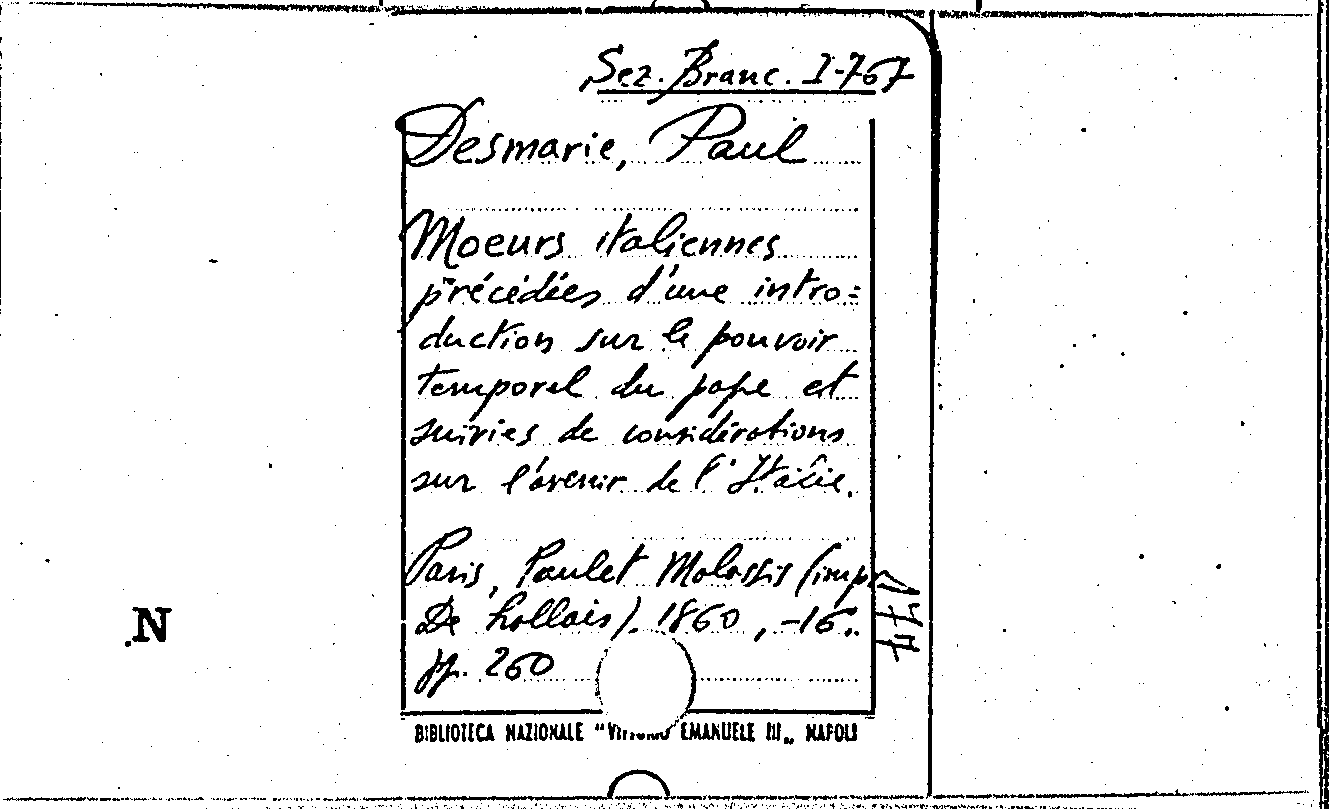 Sez. Branc. I-767
Desmarie, Paul
Moeurs italiennes
précédées d'une intro=
duction sur le pouvoir
temporel du pape et
suivies de considérations
sur l'avenir de l'Italie.
Paris, Poulet Malassis (impr
De Lollais). 1860, -16.
pp. 260
N
BIBLIOTECA NAZIONALE "VITTORIO EMANUELE III„ NAPOLI